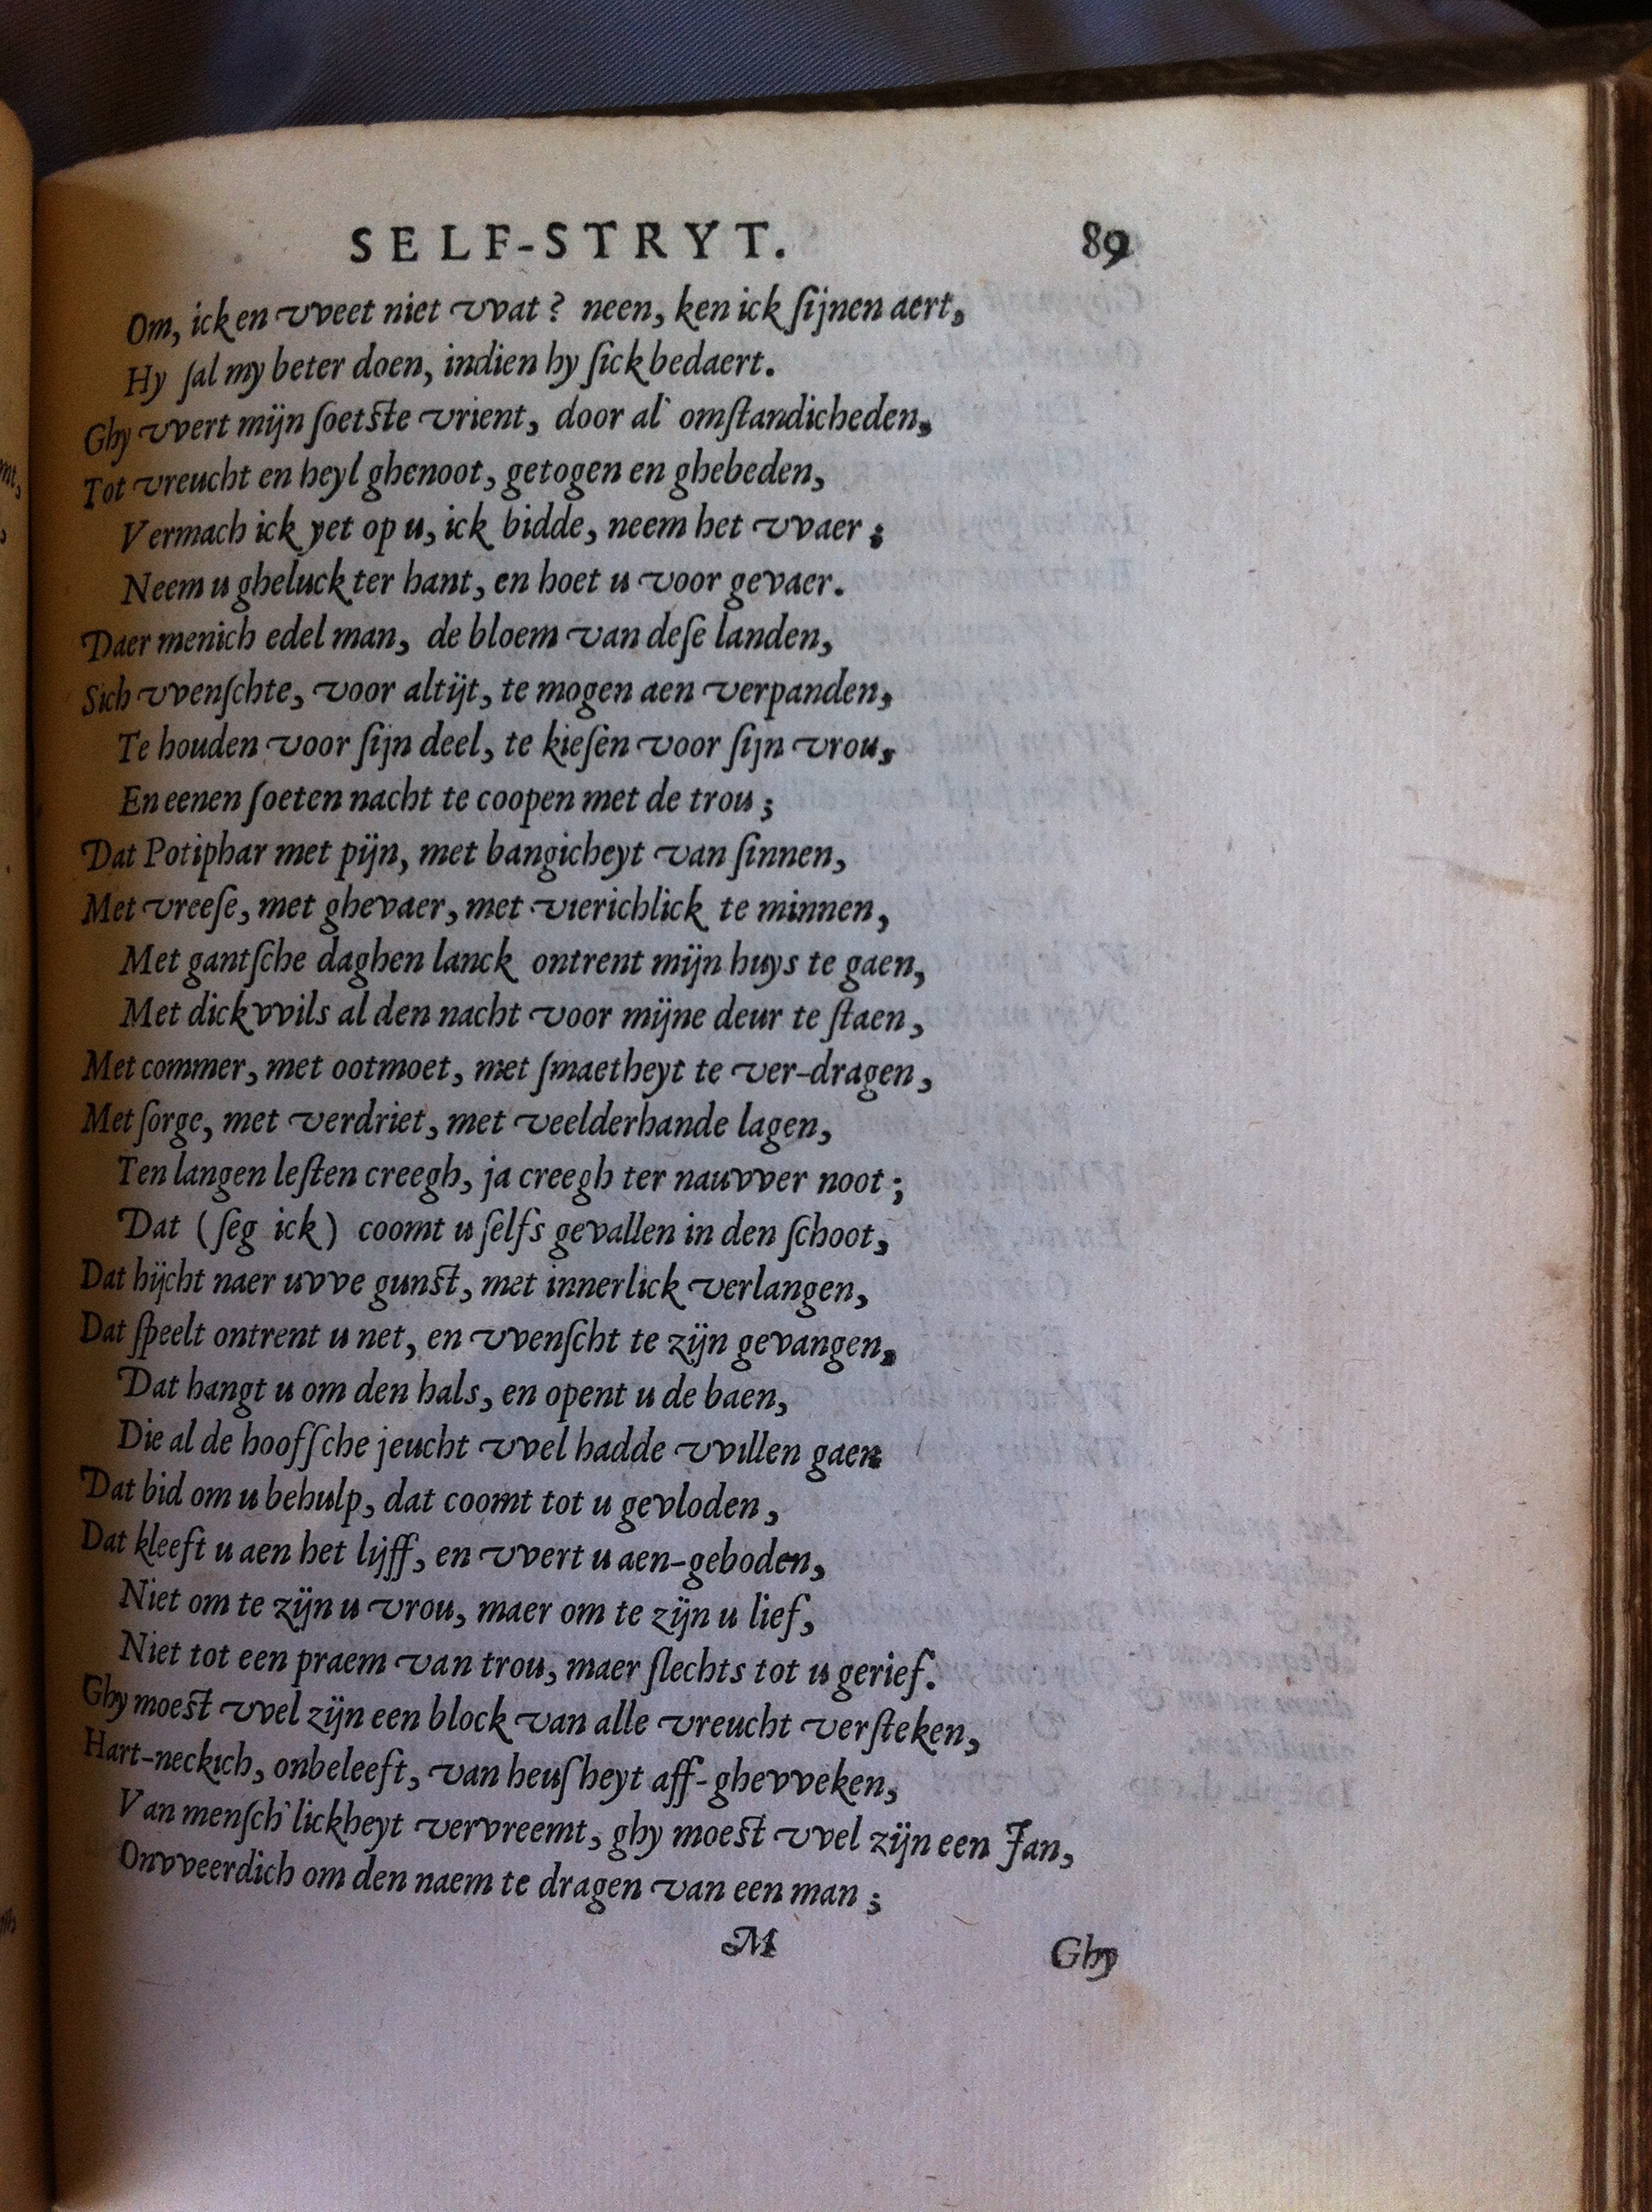 SELF-STRYT. 89
Om, ick en vveet niet vvat? neen, ken ick ſijnen aert,
Hy ſal my beter doen, indien hy ſick bedaert.
Ghy vvert mijn ſoetſte vrient, door al' omſtandicheden,
Tot vreucht en heyl ghenoot, getogen en ghebeden,
Vermach ick yet op u, ick bidde, neem het vvaer;
Neem u gheluck ter hant, en hoet u voor gevaer.
Daer menich edel man, de bloem van deſe landen,
Sich vvenſchte, voor altijt, te mogen aen verpanden,
Te houden voor ſijn deel, te kieſen voor ſijn vrou,
En eenen ſoeten nacht te coopen met de trou;
Dat Potiphar met pijn, met bangicheyt van ſinnen,
Met vreeſe, met ghevaer, met vierichlick te minnen,
Met gantſche daghen lanck ontrent mijn huys te gaen,
Met dickvvils al den nacht voor mijne deur te ſtaen,
Met commer, met ootmoet, met ſmaetheyt te ver-dragen,
Met ſorge, met verdriet, met veelderhande lagen,
Ten langen leſten creegh, ja creegh ter nauvver noot;
Dat (ſeg ick) coomt u ſelfs gevallen in den ſchoot,
Dat hijcht naer uvve gunſt, met innerlick verlangen,
Dat ſpeelt ontrent u net, en vvenſcht te zijn gevangen,
Dat hangt u om den hals, en opent u de baen,
Die al de hoofſche jeucht vvel hadde vvillen gaen
Dat bid om u behulp, dat coomt tot u gevloden,
Dat kleeft u aen het lijff, en vvert u aen-geboden,
Niet om te zijn u vrou, maer om te zijn u lief,
Niet tot een praem van trou, maer ſlechts tot u gerief.
Ghy moeſt vvel zijn een block van alle vreucht verſteken,
Hart-neckich, onbeleeft, van heuſheyt aff-ghevveken,
Van menſch'lickheyt vervreemt, ghy moeſt vvel zijn een Jan,
Onvveerdich om den naem te dragen van een man;
M Ghy